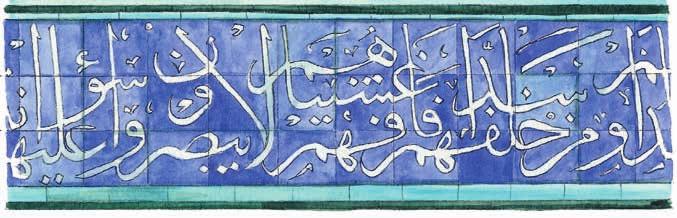 سدا ومن خلفهم سدا فاغشيناهم فهم لا يبصرون وسواء عليهم